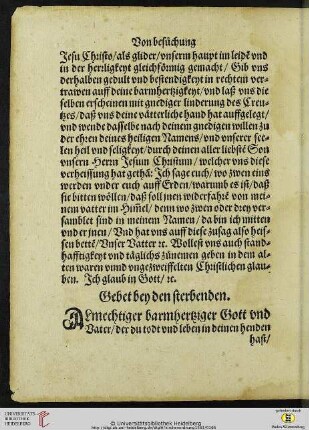 Von besuͤchung
Jesu Christo/als glider/vnserm haupt im leidẽ vnd
in der herrligkeyt gleichfoͤrmig gemacht/Gib vns
derhalben gedult vnd bestendigkeyt in rechtem ver-
trawen auff deine barmhertzigkeyt/vnd laß vns die
selben erscheinen mit gnediger linderung des Creu-
tzes/daß vns deine vaͤtterliche hand hat auffgelegt/
vnd wende dasselbe nach deinem gnedigen willen zu
der ehren deines heiligen Namens/vnd vnserer see-
len heil vnd seligkeyt/durch deinen aller liebstẽ Son
vnsern Herrn Jesum Christum/welcher vns diese
verheissung hat gethã: Ich sage euch/wo zwen eins
werden vnder euch auff Erden/warumb es ist/daß
sie bitten woͤllen/daß soll jnen widerfahrẽ von mei-
nem vatter im Him̃el/denn wo zwen oder drey ver-
samblet sind in meinem Namen/da bin ich mitten
vnder jnen/Vnd hat vns auff diese zusag also heis-
sen bettẽ/Vnser Vatter ꝛc. Wollest vns auch stand-
hafftigkeyt vnd taͤglichs zůnemen geben in dem al-
ten waren vnnd vngezweiffelten Christlichen glau-
ben. Ich glaub in Gott/ꝛc.
Gebet bey den sterbenden.
Almechtiger barmhertziger Gott vnd
Vater/der du todt vnd leben in deinen henden
hast/
UNIVERSITÄTS-
BIBLIOTHEK
HEIDELBERG
© Universitätsbibliothek Heidelberg